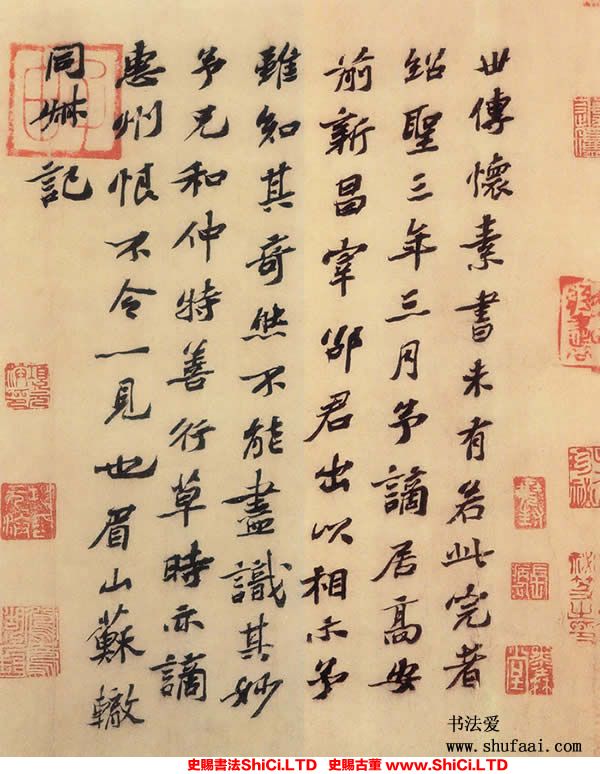 世傳懷素書未有若此完者
紹聖三年三月予謫居高安
前新昌宰邵君出以相示予
雖知其奇然不能盡識其妙
予兄和仲特善行草時亦謫
惠州恨不令一見也眉山蘇轍
同叔記
书法爱
www.shufaai.com
史賜書法ShiCi.LTD 史賜古董 www.ShiCi.LTD